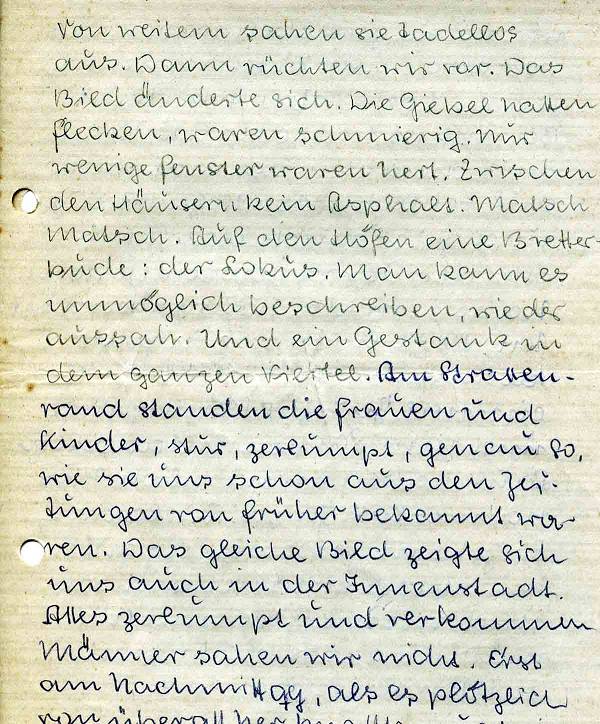 von weitem sahen sie tadellos
aus. Dann rückten wir vor. Das
Bild änderte sich. Die Giebel hatten
flecken, waren schmierig. Nur
wenige fenster waren hert. Zwischen
den Häusern kein Asphalt. Matsch
Matsch. Auf den Höfen eine Bretter-
bude: der Lokus. Man kann es
unmöglich beschreiben, wie der
aussah. Und ein Gestank in
dem ganzen Viertel. Am Straßen-
rand standen die frauen und
Kinder, stur, zerlumpt, genau so,
wie sie uns schon aus den Zei-
tungen von früher bekannt wa-
ren. Das gleiche Bild zeigte sich
uns auch in der Innenstadt.
Alles zerlumpt und verkommen
Männer sahen wir nicht. Erst
am Nachmittag, als es plötzlich
von überall her